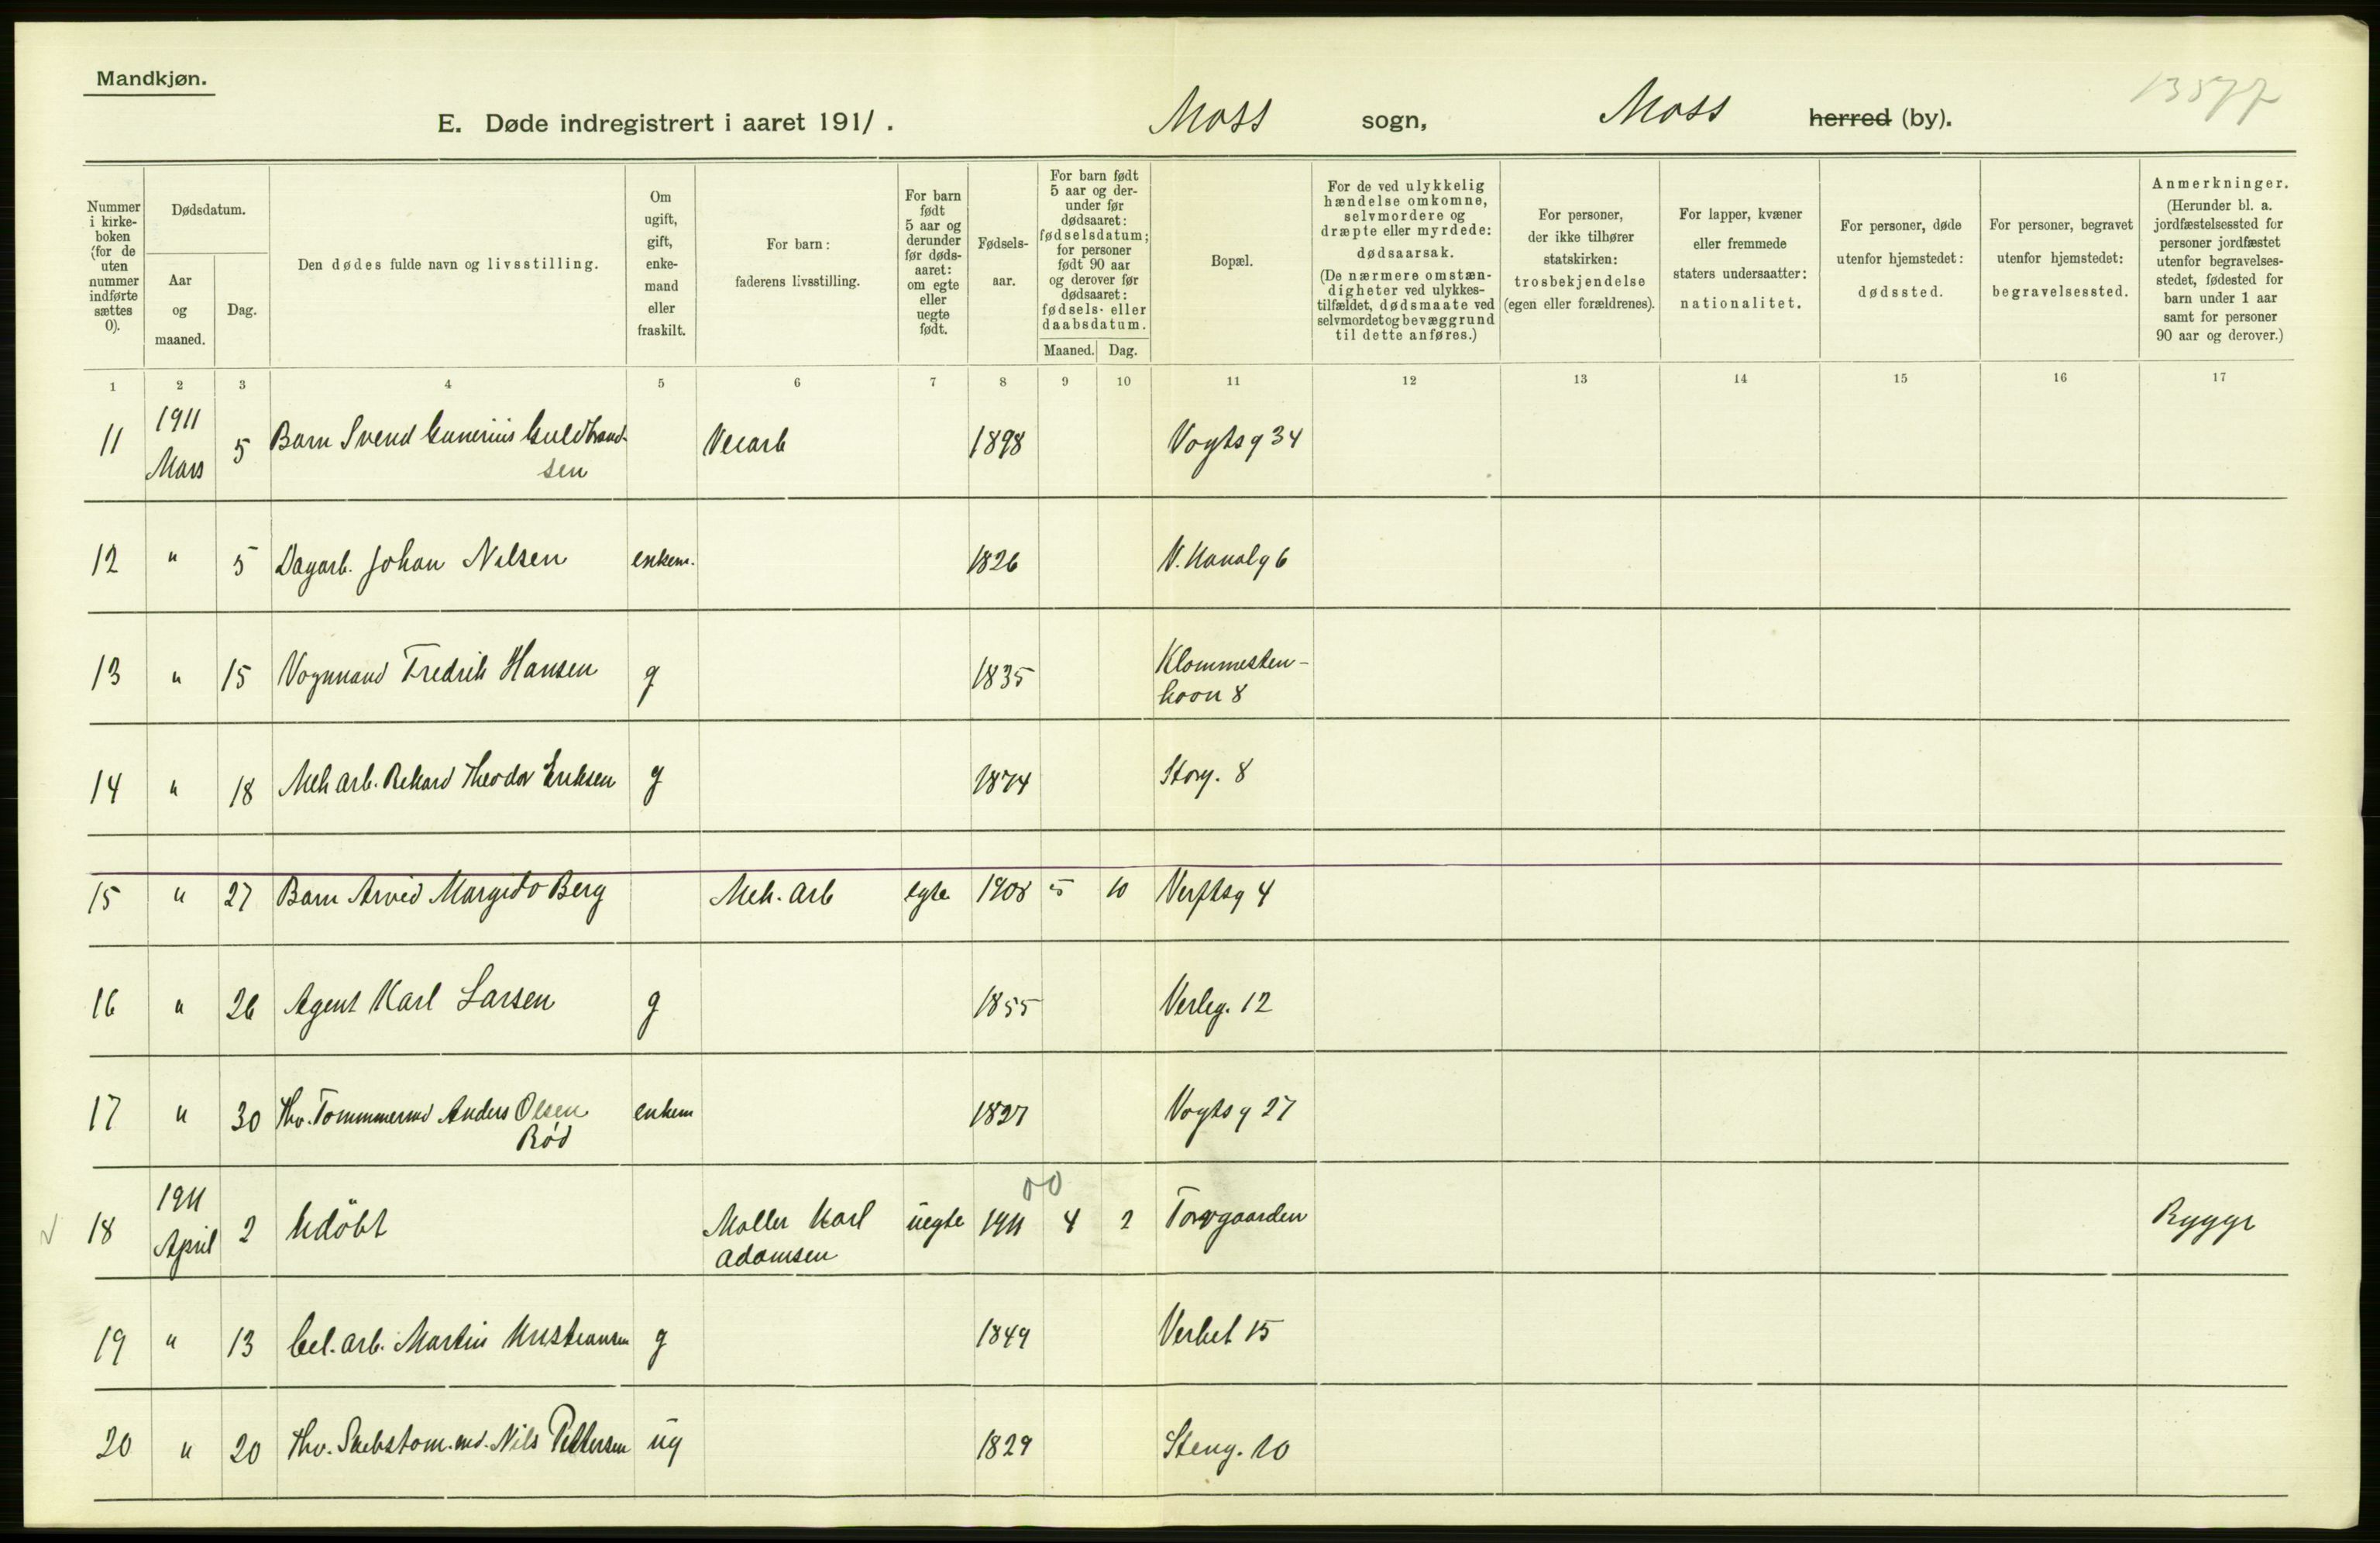 Mandkjøn.
E. Døde indregistrert i aaret 1911.
Moss sogn, Moss herred (by).
13577
Nummer i kirke-boken (for de uten nummer indførte sættes 0).
Dødsdatum.
Aar og maaned.
Dag.
Den dødes fulde navn og livsstilling.
Om ugift, gift, enke-mand eller fraskilt.
For barn: faderens livsstilling.
For barn født 5 aar og derunder før døds-aaret: om egte eller uegte født.
Fødsels-aar.
For barn født 5 aar og der-under før dødsaaret: fødselsdatum; for personer født 90 aar og derover før dødsaaret: fødsels- eller daabsdatum.
Maaned. Dag.
Bopæl.
For de ved ulykkelig hændelse omkomne, selvmordere og dræpte eller myrdede: dødsaarsak. (De nærmere omstæn-digheter ved ulykkes-tilfældet, dødsmaate ved selvmordet og bevæggrund til dette anføres.)
For personer, der ikke tilhører statskirken: trosbekjendelse (egen eller forældrenes).
For lapper, kvæner eller fremmede staters undersaatter: nationalitet.
For personer, døde utenfor hjemstedet: dødssted.
For personer, begravet utenfor hjemstedet: begravelsessted.
Anmerkninger. (Herunder bl. a. jordfæstelsessted for personer jordfæstet utenfor begravelses-stedet, fødested for barn under 1 aar samt for personer 90 aar og derover.)
1 2 3 4 5 6 7 8 9 10 11 12 13 14 15 16 17
11 1911 Mars 5 Barn Svend Gunerius Guldbrand-
sen Veiarb 1898 Vogtsg 34
12 " 5 Dagarb. Johan Nilsen enkem. 1826 N. Kanalg 6
13 " 15 Vognmand Fredrik Hansen g 1835 Klommesten-
hoon 8
14 " 18 Mek arb. Rikard Theodor Eriksen g 1874 Storg. 8
15 " 27 Barn Arvid Margido Berg Mek. arb egte 1908 5 10 Verftsg 4
16 " 26 Agent Karl Larsen g 1855 Verleg. 12
17 " 30 Fhv. Tømmermd Anders Olsen
Rød enkem 1827 Vogtsg 27
18 1911 April 2 Udöbt Møller Karl
Adamsen uegte 1911 00 4 2 Torvgaarden Rygge
19 " 13 Cel. arb. Martin Kristiansen g 1849 Verket 15
20 " 20 Fhv. Skibstøm.md. Nils Pettersen ug 1829 Steng. 10